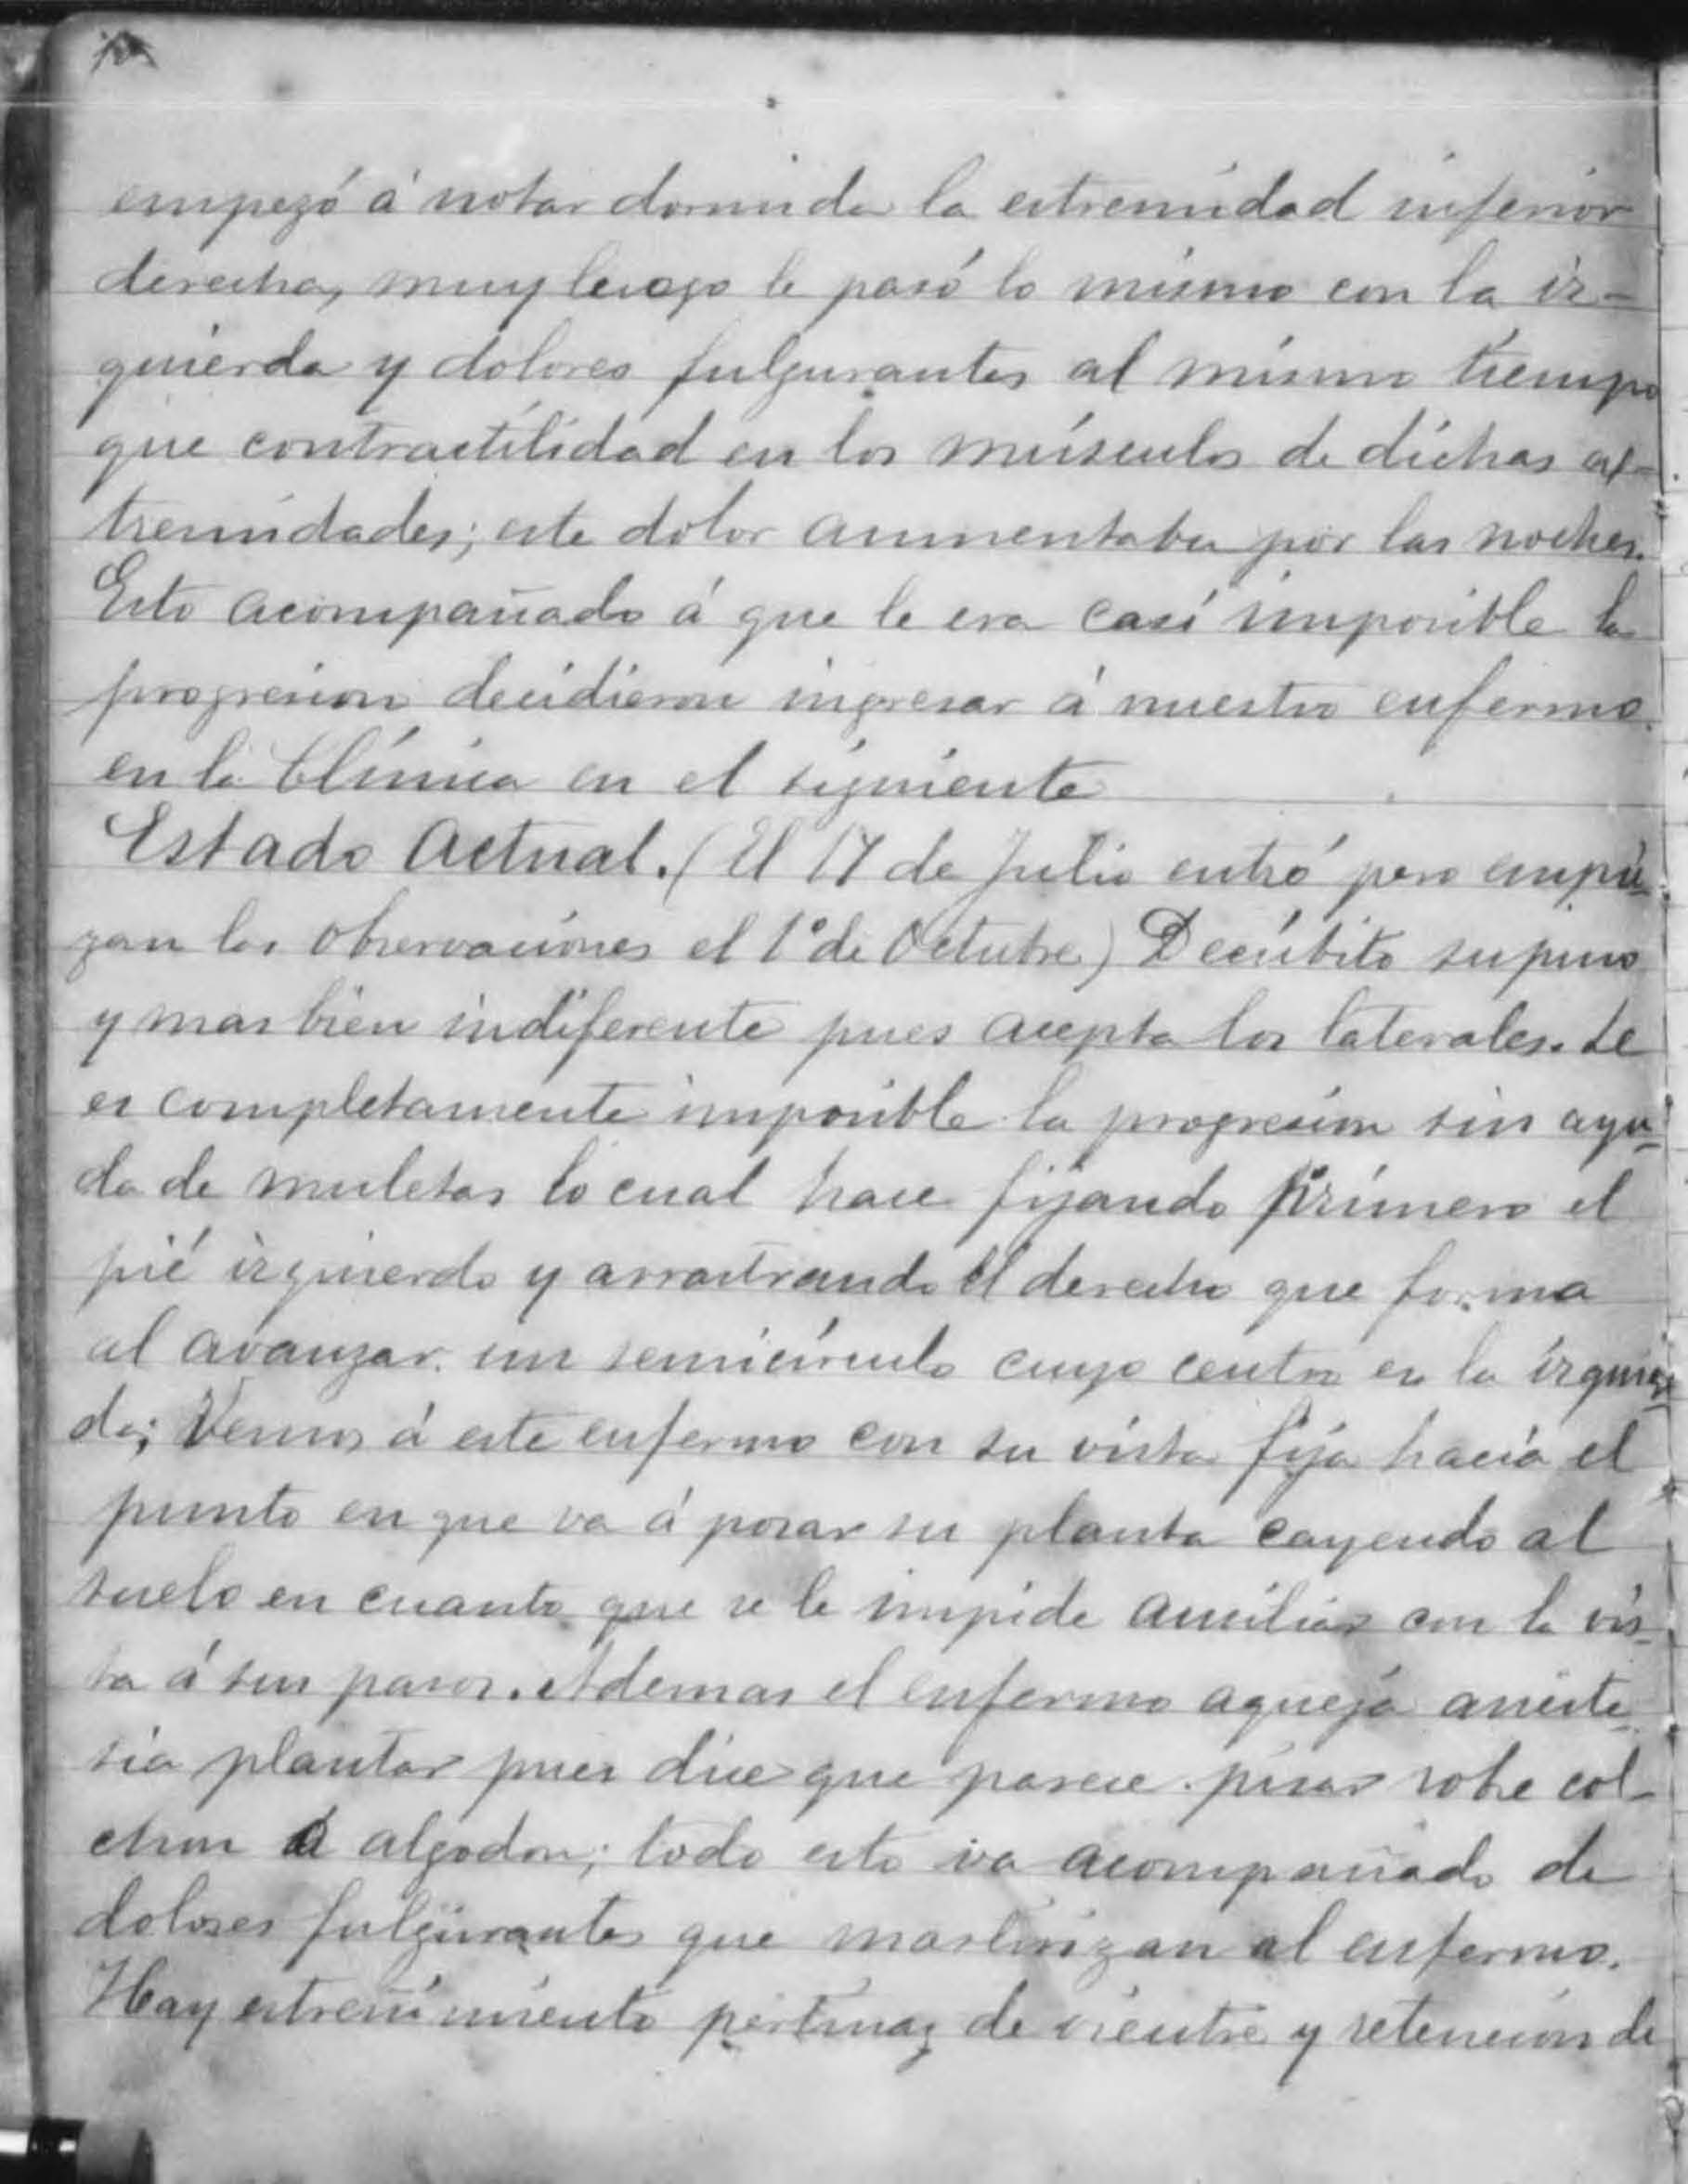 empezó á notar dormida la estremidad inferior
derecha, muy luego le pasó lo mismo con la iz-
quierda y dolores fulgurantes al mismo tiempo
que contractilidad en los músculos de dichas ex-
tremidades; este dolor aumentaba por las noches.
Esto acompañado á que le era casi imposible la
progresion decidieron ingresar á nuestro enfermo
en la Clínica en el siguiente
Estado Actual. (El 17 de Julio entró pero empie-
zan las observaciones el 1º de Octubre) Decúbito supino
y mas bien indiferente pues acepta los laterales. Le
es completamente imposible la progresion sin ayu-
da de muletas lo cual hace fijando primero el
pié izquierdo y arrastrando el derecho que forma
al avanzar un semicírculo cuyo centro es la izquier-
da; Vemos á este enfermo con su vista fija hacia el
punto en que va á posar su planta cayendo al
suelo en cuanto que se le impide auxiliar con la vis-
ta á sus pasos. Ademas el enfermo aqueja aneste-
sia plantar pues dice que parece pisar sobre col-
chon ó algodon; todo esto va acompañado de
dolores fulgurantes que martirizan al enfermo.
Hay estreñimiento pertinaz de vientre y retencion de